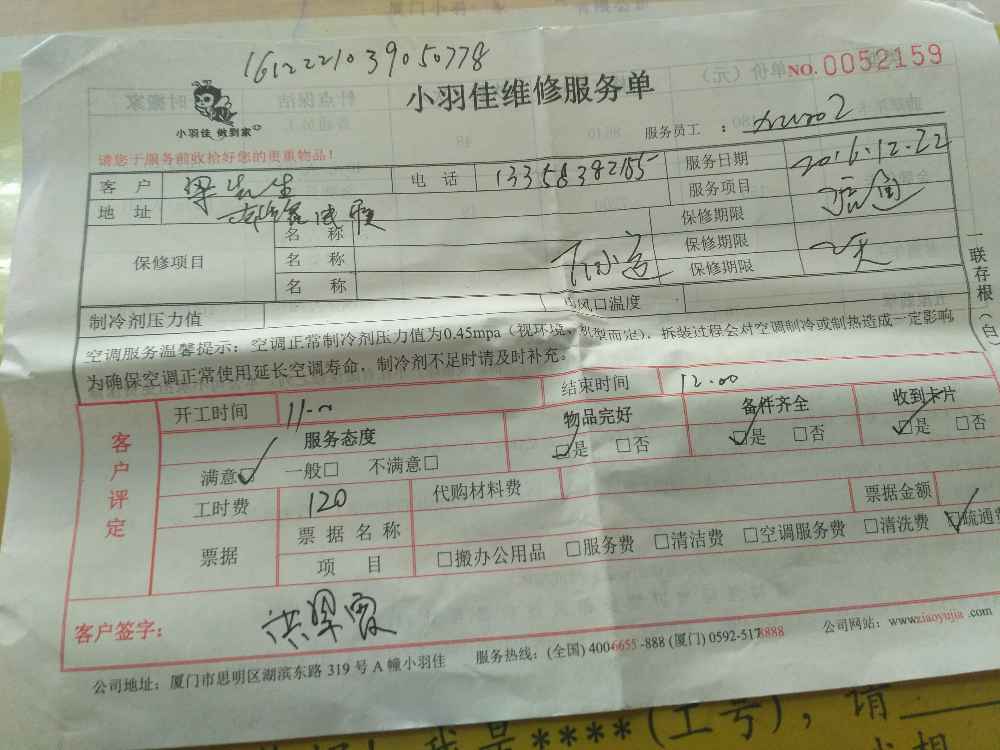 1612221039050778
小羽佳维修服务单
NO.0052159
小羽佳 做到家
请您于服务前收拾好您的贵重物品!
服务员工 :
客 户 梁先生 电 话 13358382185 服务日期 2016.12.22
地 址 服务项目
保修项目 名 称 保修期限
名 称 保修期限
名 称 保修期限
天
一联存根(白)
制冷剂压力值 出风口温度
空调服务温馨提示:空调正常制冷剂压力值为0.45mpa(视环境、机型而定),拆装过程会对空调制冷或制热造成一定影响
为确保空调正常使用延长空调寿命,制冷剂不足时请及时补充。
客户评定
开工时间 11-00 结束时间 12.00
服务态度 物品完好 备件齐全 收到卡片
满意□ 一般□ 不满意□ □是 □否 □是 □否 □是 □否
工时费 120 代购材料费 票据金额
票据 票 据 名 称
项 目 □搬办公用品 □服务费 □清洁费 □空调服务费 □清洗费 □疏通费
客户签字: 洪翠霞
公司地址:厦门市思明区湖滨东路 319 号 A 幢小羽佳 服务热线:(全国) 4006655-888 (厦门) 0592-5178888 公司网站:www.xiaoyujia.com
我是****(工号),请